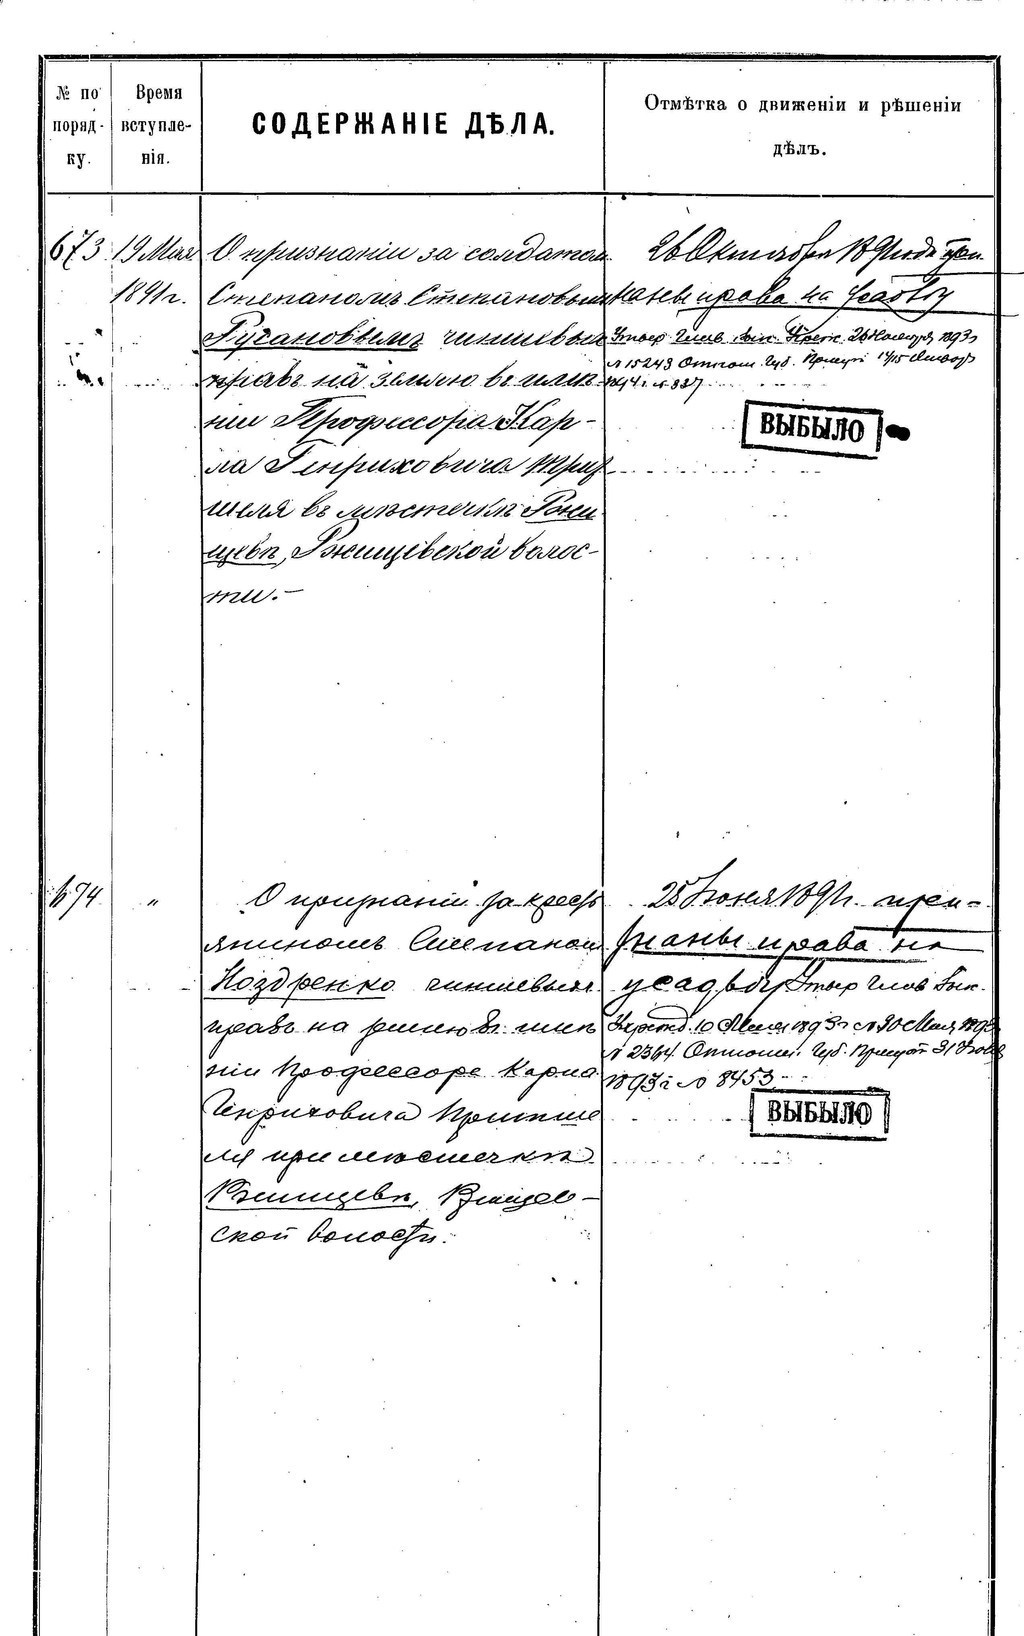 № по порядку.
Время вступленія.
СОДЕРЖАНІЕ ДѢЛА.
Отмѣтка о движеніи и рѣшеніи
дѣлъ.
673
19 Мая
1891 г.
О признаніи за солдатом
Степаномъ Степановым
Ругановымъ чиншевых
правъ на землю въ имѣ-
ніи Профессора Кар-
ла Генриховича Трит
шеля въ мѣстечкѣ Ржи
щевѣ, Ржищевской волос-
ти.-
26 Октября 1891 года при
знаны права на усадьбу
26 Ноября 1893 г
№ 15243 Губ. 14/15 Января
1894 г. № 337
ВЫБЫЛО
674
"
О признаніи за крест
яниномъ Степаном
Ноздренко чиншевыхъ
правъ на землю въ имѣ
ніи Профессора Карла
Генриховича Тритше
ля при мѣстечкѣ
Ржищевѣ, Ржищев-
ской волости.
25 Іюня 1891 г. приз-
наны права на
усадьбу
10 Мая 1893 г № 30 Мая 1893
№ 2364 Губ. 31
1893 г № 8453
ВЫБЫЛО